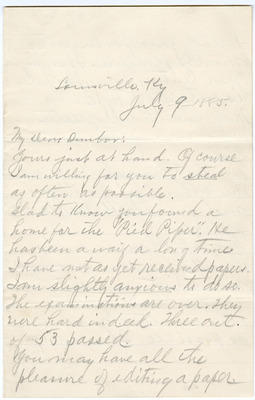 Louisville, Ky
July 9 1885.
My Dear Dunbar:
Yours just at hand. Of course
I am willing for you to steal
as often as possible.
Glad to know you found a
home for the "Pied Piper". He
has been a waif a long time
I have not as yet received papers.
I am slightly anxious to do so.
The examinations are over. They
were hard indeed. Three out
of 53 passed.
You may have all the
pleasure of editing a paper